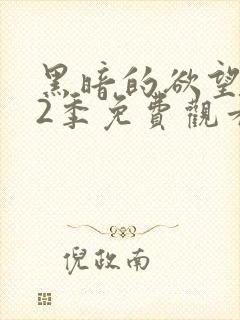 黑暗的欲望
2季免費觀看
倪政南